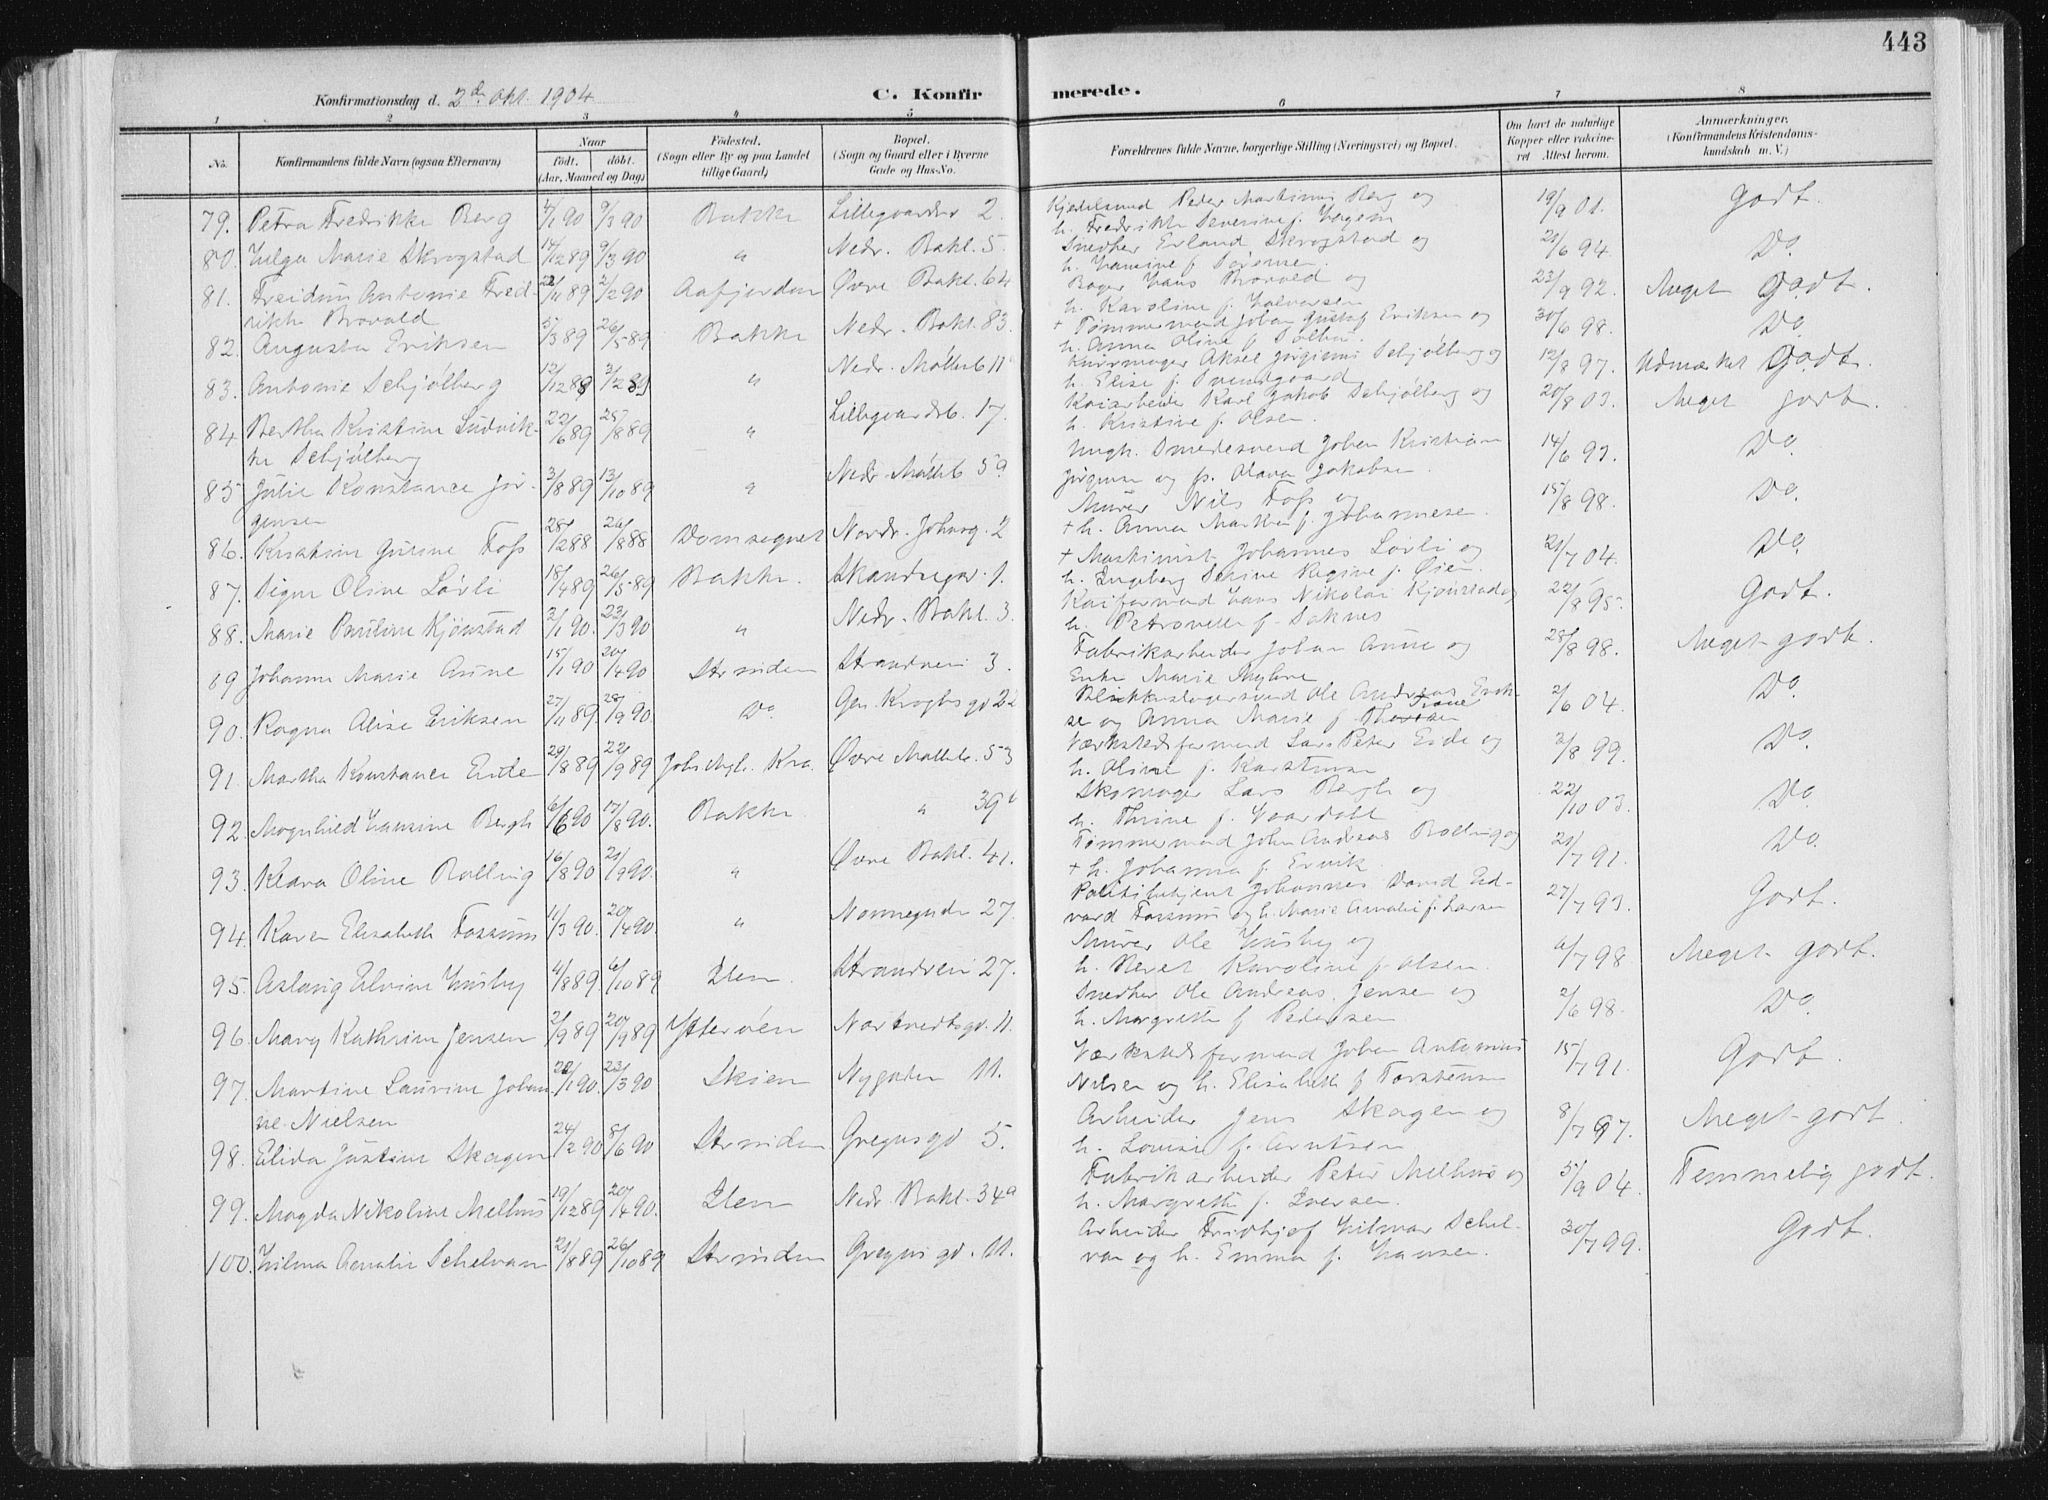 443
Konfirmationsdag d. 2den Okt. 1904
C. Konfirmerede.
1 2 3 4 5 6 7 8
No. Konfirmandens fulde Navn (ogsaa Efternavn) Naar født. døbt. (Aar, Maaned og Dag) Fødested. (Sogn eller By og paa Landet tillige Gaard) Bopæl. (Sogn og Gaard eller i Byerne Gade og Hus-No. Forældrenes fulde Navne, borgerlige Stilling (Næringsvei) og Bopæl. Om havt de naturlige Kopper eller vaccineret Attest herom. Anmærkninger. (Konfirmandens Kristendomskundskab m. V.)
79. Petra Fredrikke Berg 4/1 90 9/3 90 Bakke Lillegaardsb 2. Kjedelsmed Peder Martinus Berg og
h. Fredrikke Severine f. 19/9 01. Godt.
80. Helga Marie Skrogstad 17/12 89 9/3 90 " Nedr. Bakl. 5. Snedker Erland Skrogstad og
h. Hansine f. Sørensen 21/6 94. Do.
81. Freidun Antonie Fredrikke Brovold 22/11 89 2/2 90 Aafjorden Øvre Bakl. 64 Bager Hans Brovold og
h. Karoline f. Halvorsen 23/9 92. Meget Godt.
82. Augusta Eriksen 5/3 89 26/5 89 Bakke Nedr. Bakl. 83. + Tømmermand Johan Gustaf Eriksen og
h. Anna Oline f. 30/6 98. Do.
83. Antonie Schjølberg 12/12 88 3/2 89 " Nedr. Møllenb 11 Aksel Jørginus Schjølberg og
h. Elise f. Svendgaard 12/8 97. Udmærket Godt.
84. Bertha Kristine Ludvikke Schjølberg 22/6 89 25/8 89 " Lillegaardsb. 17. Kaiarbeider Karl Jakob Schjølberg og
h. Kristine f. Olsen. 20/8 03. Meget godt.
85. Julie Konstance Jørgensen 3/8 89 13/10 89 " Nedr. Møllenb 59. Ungk. Smedesvend Johan Kristian
Jørgensen og fp. Olava Jakobsen. 14/6 93. Do.
86. Kristine Gurine Foss 28/2 88 26/8 88 Domsognet Nordr. Johnsg. 2 Murer Nils Foss og
+ h. Anna Marthea f. Johannesen. 15/8 98. Do.
87. Signe Oline Løvli 18/4 89 26/5 89 Bakke. Skandsegd. 1. + Maskinist Johannes Løvli og
h. Ingeborg Serine Regine f. Øien. 21/7 04. Do.
88. Marie Pauline Kjønstad 3/1 90. 23/3 90 " Nedr. Bakl. 3. Kaiformand Hans Nikolai Kjønstad og
h. Petronelle f. Saknes 22/8 95. Godt.
89 Johanna Marie Aune 15/1 90 20/4 90 Strinden Strandvei 3. Fabrikarbeider Johan Aune og
Enke Marie Myhre 28/8 98. Meget godt.
90. Ragna Alise Eriksen 27/11 89. 28/9 90. Do Gen. Kroghs gd 22 Blikkenslagersvend Ole Andreas Eriksen og Anna Marie f. 2/6 04. Do.
91. Martha Konstance Eide 29/8 89 22/9 89 Johs mgh. Kra. Øvre Møllenb. 53 Værkstedsformand Lars Peter Eide og
h. Oline f. Karstensen 3/8 99. Do.
92. Magnhild Hansine Bergh 6/6 90 17/8 90. Bakke " 39 b Skomager Lars Bergh og
h. Thrine f. 22/10 03. Do.
93. Klara Oline Rolling 16/8 90 21/9 90. " Øvre Bakl. 41. Tømmermand John Andreas Rolling og
+ h. Johanna f. Ervik. 21/7 91. Do.
94. Karen Elisabeth Fossum 11/3 90. 20/4 90. " Nonnegaden 27. Politibetjent Johannes David Edvard Fossum og h. Marie Amalie f. Larsen 27/7 93. Godt.
95. Aslaug Elvine Husby 4/8 89. 6/10 89 Ilen. Strandvei 27. Murer Ole Husby og
h. Beret Karoline f. Olsen. 6/7 98. Meget godt.
96. Mary Kathrine Jensen 2/9 89 20/9 89 Ytterøen Nordtvedtsgd. 11. Snedker Ole Andreas Jensen og
h. Margrethe f Pedersen 2/6 98. Do.
97. Martine Laurine Johanne Nielsen 22/1 90. 23/3 90 Skien Nygaden 11. Værkstedsformand Johan Antonius
Nilsen og h. Elisabeth f Torstensen 15/7 91. Godt.
98. Elida Justine Skagen 24/2 90 8/6 90 Strinden Gregusgd 5. Arbeider Jens Skagen og
h. Lovise f. Arntsen 8/7 97. Meget godt.
99. Magda Nikoline Melhus 19/12 89 20/4 90. Ilen Nedr. Bakl. 34a Fabrikarbeider Peter Melhus og
h. Margrethe f. Iversen. 5/9 04. Temmelig godt.
100. Hilma Amalie Schelvan 21/8 89 26/10 89 Strinden Gregus gd. 11. Arbeider Fridthjof Hilmar Schelvan og h. Emma f. Hansen. 30/7 99. Godt.